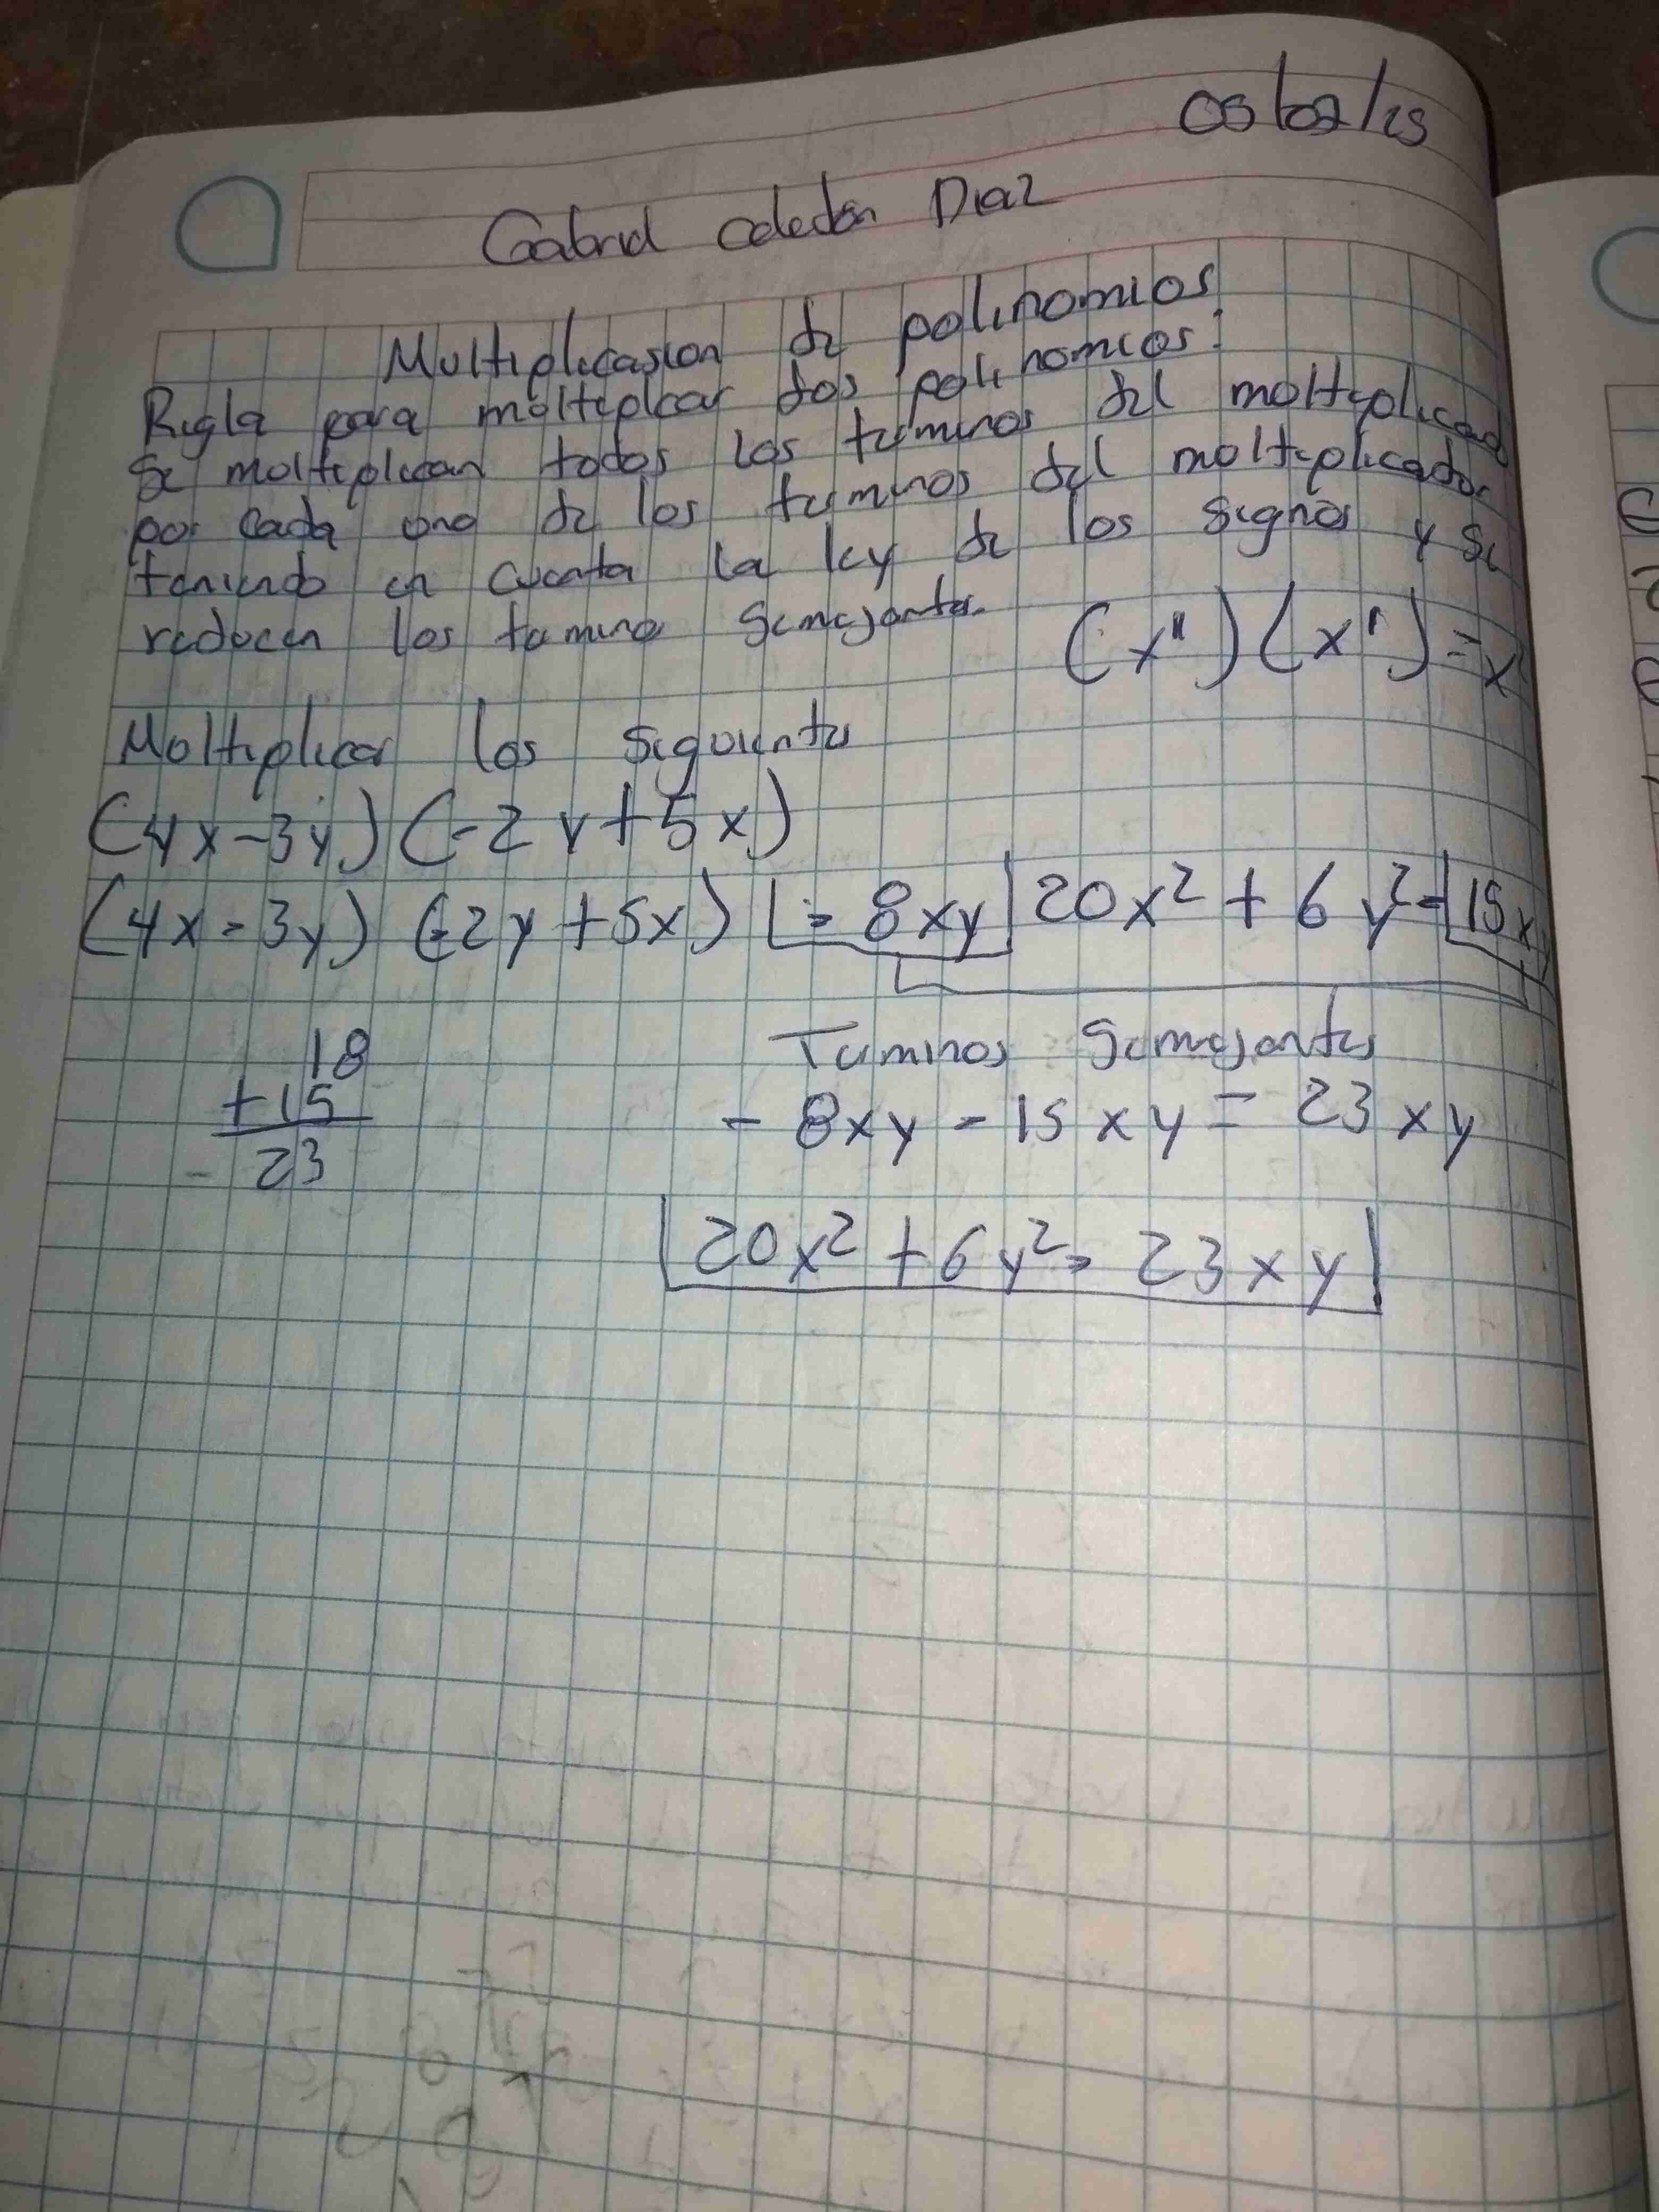 05/02/25
Gabriel Celedon Diaz
Multiplicasion de polinomios
Regla para moltiplicar dos polinomios:
Se moltiplican todos los terminos del moltiplicado
por cada uno de los terminos del moltiplicador
teniendo en cuenta la ley de los signos y se
reducen los termino semejantes.
(x")(x')=x
Moltiplicar los siguientes
(4x-3y)(-2y+5x)
(4x-3y)(-2y+5x) - 8xy 20x²+6y²-15xy
18
+15
- 23
Terminos semejantes
- 8xy - 15xy = 23xy
20x²+6y²- 23xy